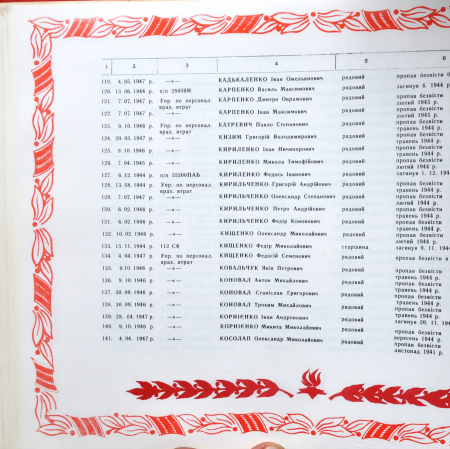 1 2 3 4 5 6
119. 4.05.1947 р. —«— КАДЬКАЛЕНКО Іван Омелянович рядовий пропав безвісти
120. 13.06.1944 р. п/п 28659И КАРПЕНКО Василь Максимович рядовий загинув 8. 1944 р.
121. 7.07.1947 р. Упр. по персонал. КАРПЕНКО Дмитро Оврамович рядовий пропав безвісти
врах. втрат лютий 1945 р.
122. 7.07.1947 р. —«— КАРПЕНКО Іван Максимович рядовий пропав безвісти
лютий 1945 р.
123. 9.10.1946 р. Упр. по персонал. КАТРЕВИЧ Павло Степанович рядовий пропав безвісти
врах. втрат травень 1944 р.
124. 20.03.1947 р. —«— КИЗИМ Григорій Володимирович рядовий пропав безвісти
травень 1944 р.
125. 9.10.1946 р. —«— КИРИЛЕНКО Іван Ничипорович рядовий пропав безвісти
травень 1944 р.
126. 7.04.1945 р. —«— КИРИЛЕНКО Микола Тимофійович рядовий пропав безвісти
травень 1944 р.
127. 6.12.1944 р. п/п 55200ПАБ КИРИЛЕНКО Федось Іванович рядовий загинув 1. 12. 1944
128. 13.08.1944 р. Упр. по персонал. КИРИЛЬЧЕНКО Григорій Андрійович рядовий пропав безвісти
врах. втрат травень 1944 р.
129. 7.07.1947 р. —«— КИРИЛЬЧЕНКО Олександр Степанович рядовий пропав безвісти
лютий 1944 р.
130. 6.02.1946 р. —«— КИРИЛЬЧЕНКО Петро Андрійович рядовий пропав безвісти
травень 1944 р.
131. 6.02.1946 р. —«— КИРИЛЬЧЕНКО Федір Кононович рядовий пропав безвісти
травень 1944 р.
132. 10.02.1946 р. —«— КИЩЕНКО Олександр Миколайович рядовий пропав безвісти
лютий 1944 р.
133. 15.11.1944 р. 112 СК КИЩЕНКО Федір Миколайович старшина загинув 9. 11. 194
134. 4.04.1947 р. Упр. по персонал. КИЩЕНКО Федосій Семенович рядовий пропав безвісти в
врах. втрат
135. 9.10.1946 р. —«— КОВАЛЬЧУК Яків Петрович рядовий пропав безвісти
травень 1944 р.
136. 9.10.1946 р. —«— КОНОВАЛ Антон Михайлович рядовий пропав безвісти
травень 1944 р.
137. 30.09.1946 р. —«— КОНОВАЛ Станіслав Григорович рядовий пропав безвісти
травень 1944 р.
138. 30.09.1946 р. —«— КОНОВАЛ Трохим Михайлович рядовий пропав безвісти
травень 1944 р.
139. 28.04.1947 р. —«— КОРНІЄНКО Іван Андронович рядовий загинув 20. 11. 194
140. 9.10.1946 р. —«— КОРНІЄНКО Микита Миколайович рядовий пропав безвісти
вересень 1944 р.
141. 4.06.1947 р. —«— КОСОЛАП Олександр Миколайович рядовий пропав безвісти
листопад 1941 р.